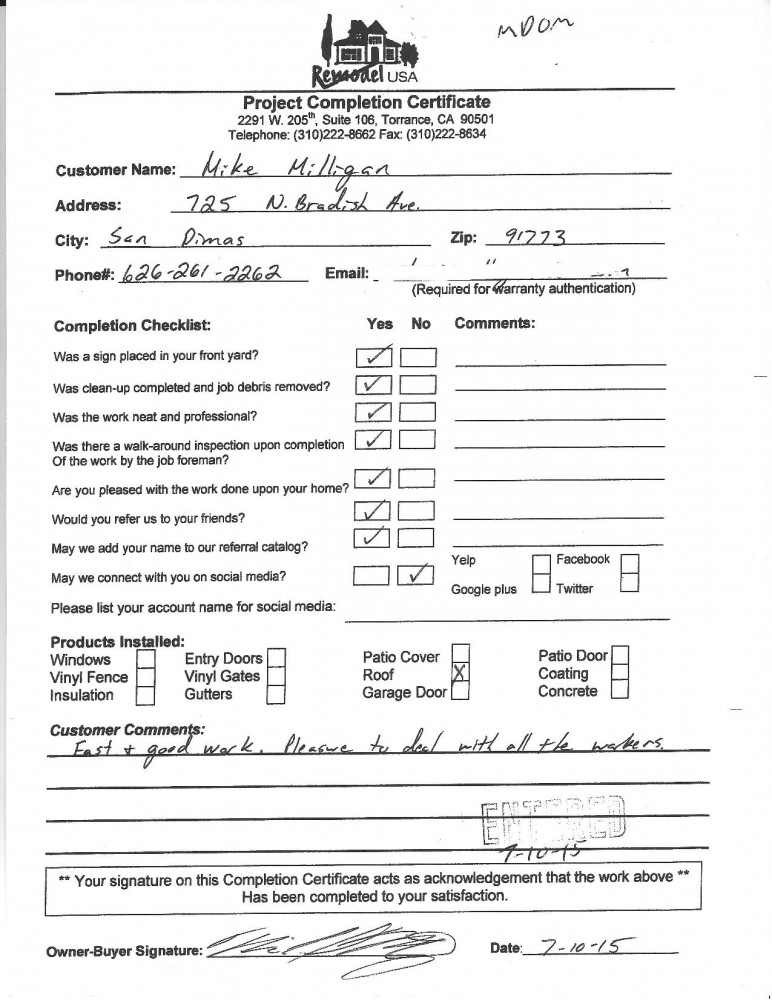 MDOM
Remodel USA
Project Completion Certificate
2291 W. 205th, Suite 106, Torrance, CA 90501
Telephone: (310)222-8662 Fax: (310)222-8634
Customer Name: Mike Milligan
Address: 725 N. Bradish Ave.
City: San Dimas Zip: 91773
Phone#: 626-261-2262 Email:
(Required for Warranty authentication)
Completion Checklist: Yes No Comments:
Was a sign placed in your front yard?
Was clean-up completed and job debris removed?
Was the work neat and professional?
Was there a walk-around inspection upon completion
Of the work by the job foreman?
Are you pleased with the work done upon your home?
Would you refer us to your friends?
May we add your name to our referral catalog?
Yelp Facebook
May we connect with you on social media?
Google plus Twitter
Please list your account name for social media:
Products Installed:
Windows Entry Doors Patio Cover Patio Door
Vinyl Fence Vinyl Gates Roof X Coating
Insulation Gutters Garage Door Concrete
Customer Comments:
Fast + good work. Pleasure to deal with all the workers.
ENTERED
7-10-15
** Your signature on this Completion Certificate acts as acknowledgement that the work above **
Has been completed to your satisfaction.
Owner-Buyer Signature: Date: 7-10-15